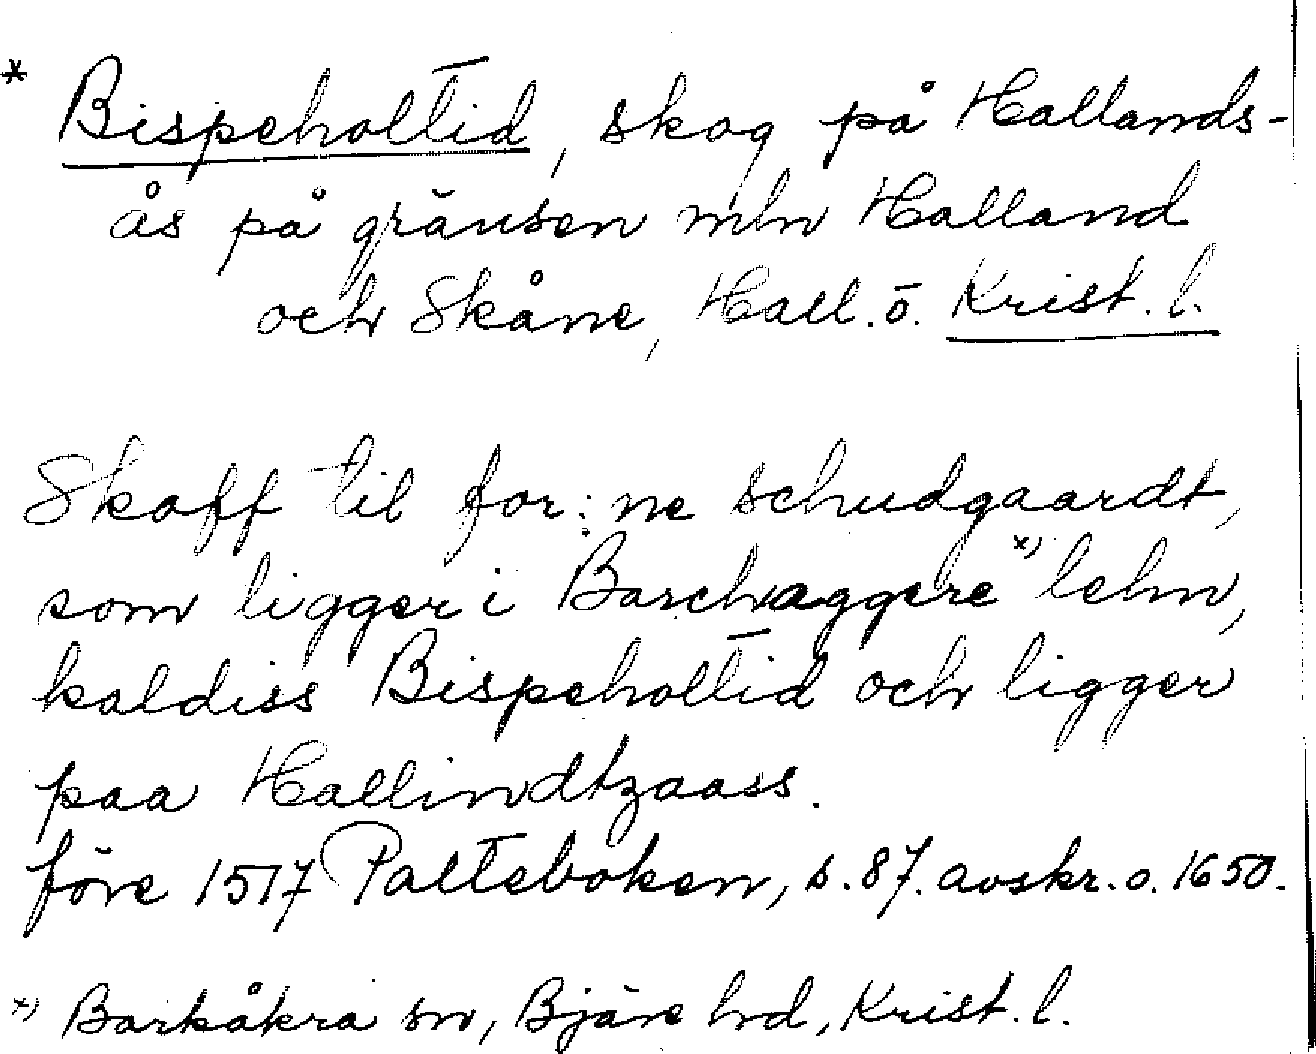 * Bispeholtid, skog på Hallands-
ås på gränsen mln Halland
och Skåne, Hall. o. Krist. l.
Skoff til for:ne schudgaardt,
som ligger i Barchaggere x) lehn,
kaldiss Bispeholtid och ligger
paa Hallindtzaass.
före 1517 Palteboken, s. 87. avskr. o. 1650.
x) Barkåkra sn, Bjäre hd, Krist. l.